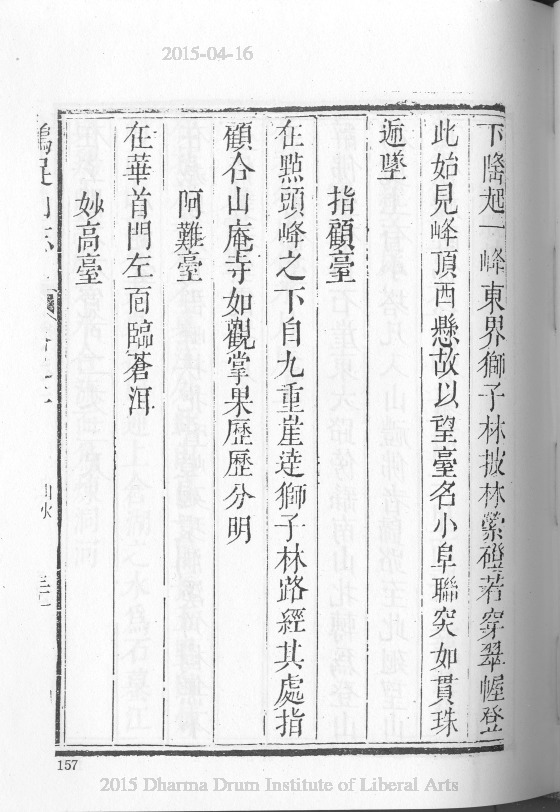 2015-04-16
下隆起一峰東界獅子林披林縈磴若穿翠幄登
此始見峰頂西懸故以望臺名小阜聯突如貫珠
遞墜
指顧臺
在㸃頭峰之下自九重崖達獅子林路經其處指
顧合山庵寺如觀掌果歷歷分明
阿難臺
在華首門左面臨蒼洱
妙高臺
山水
157
2015 Dharma Drum Institute of Liberal Arts